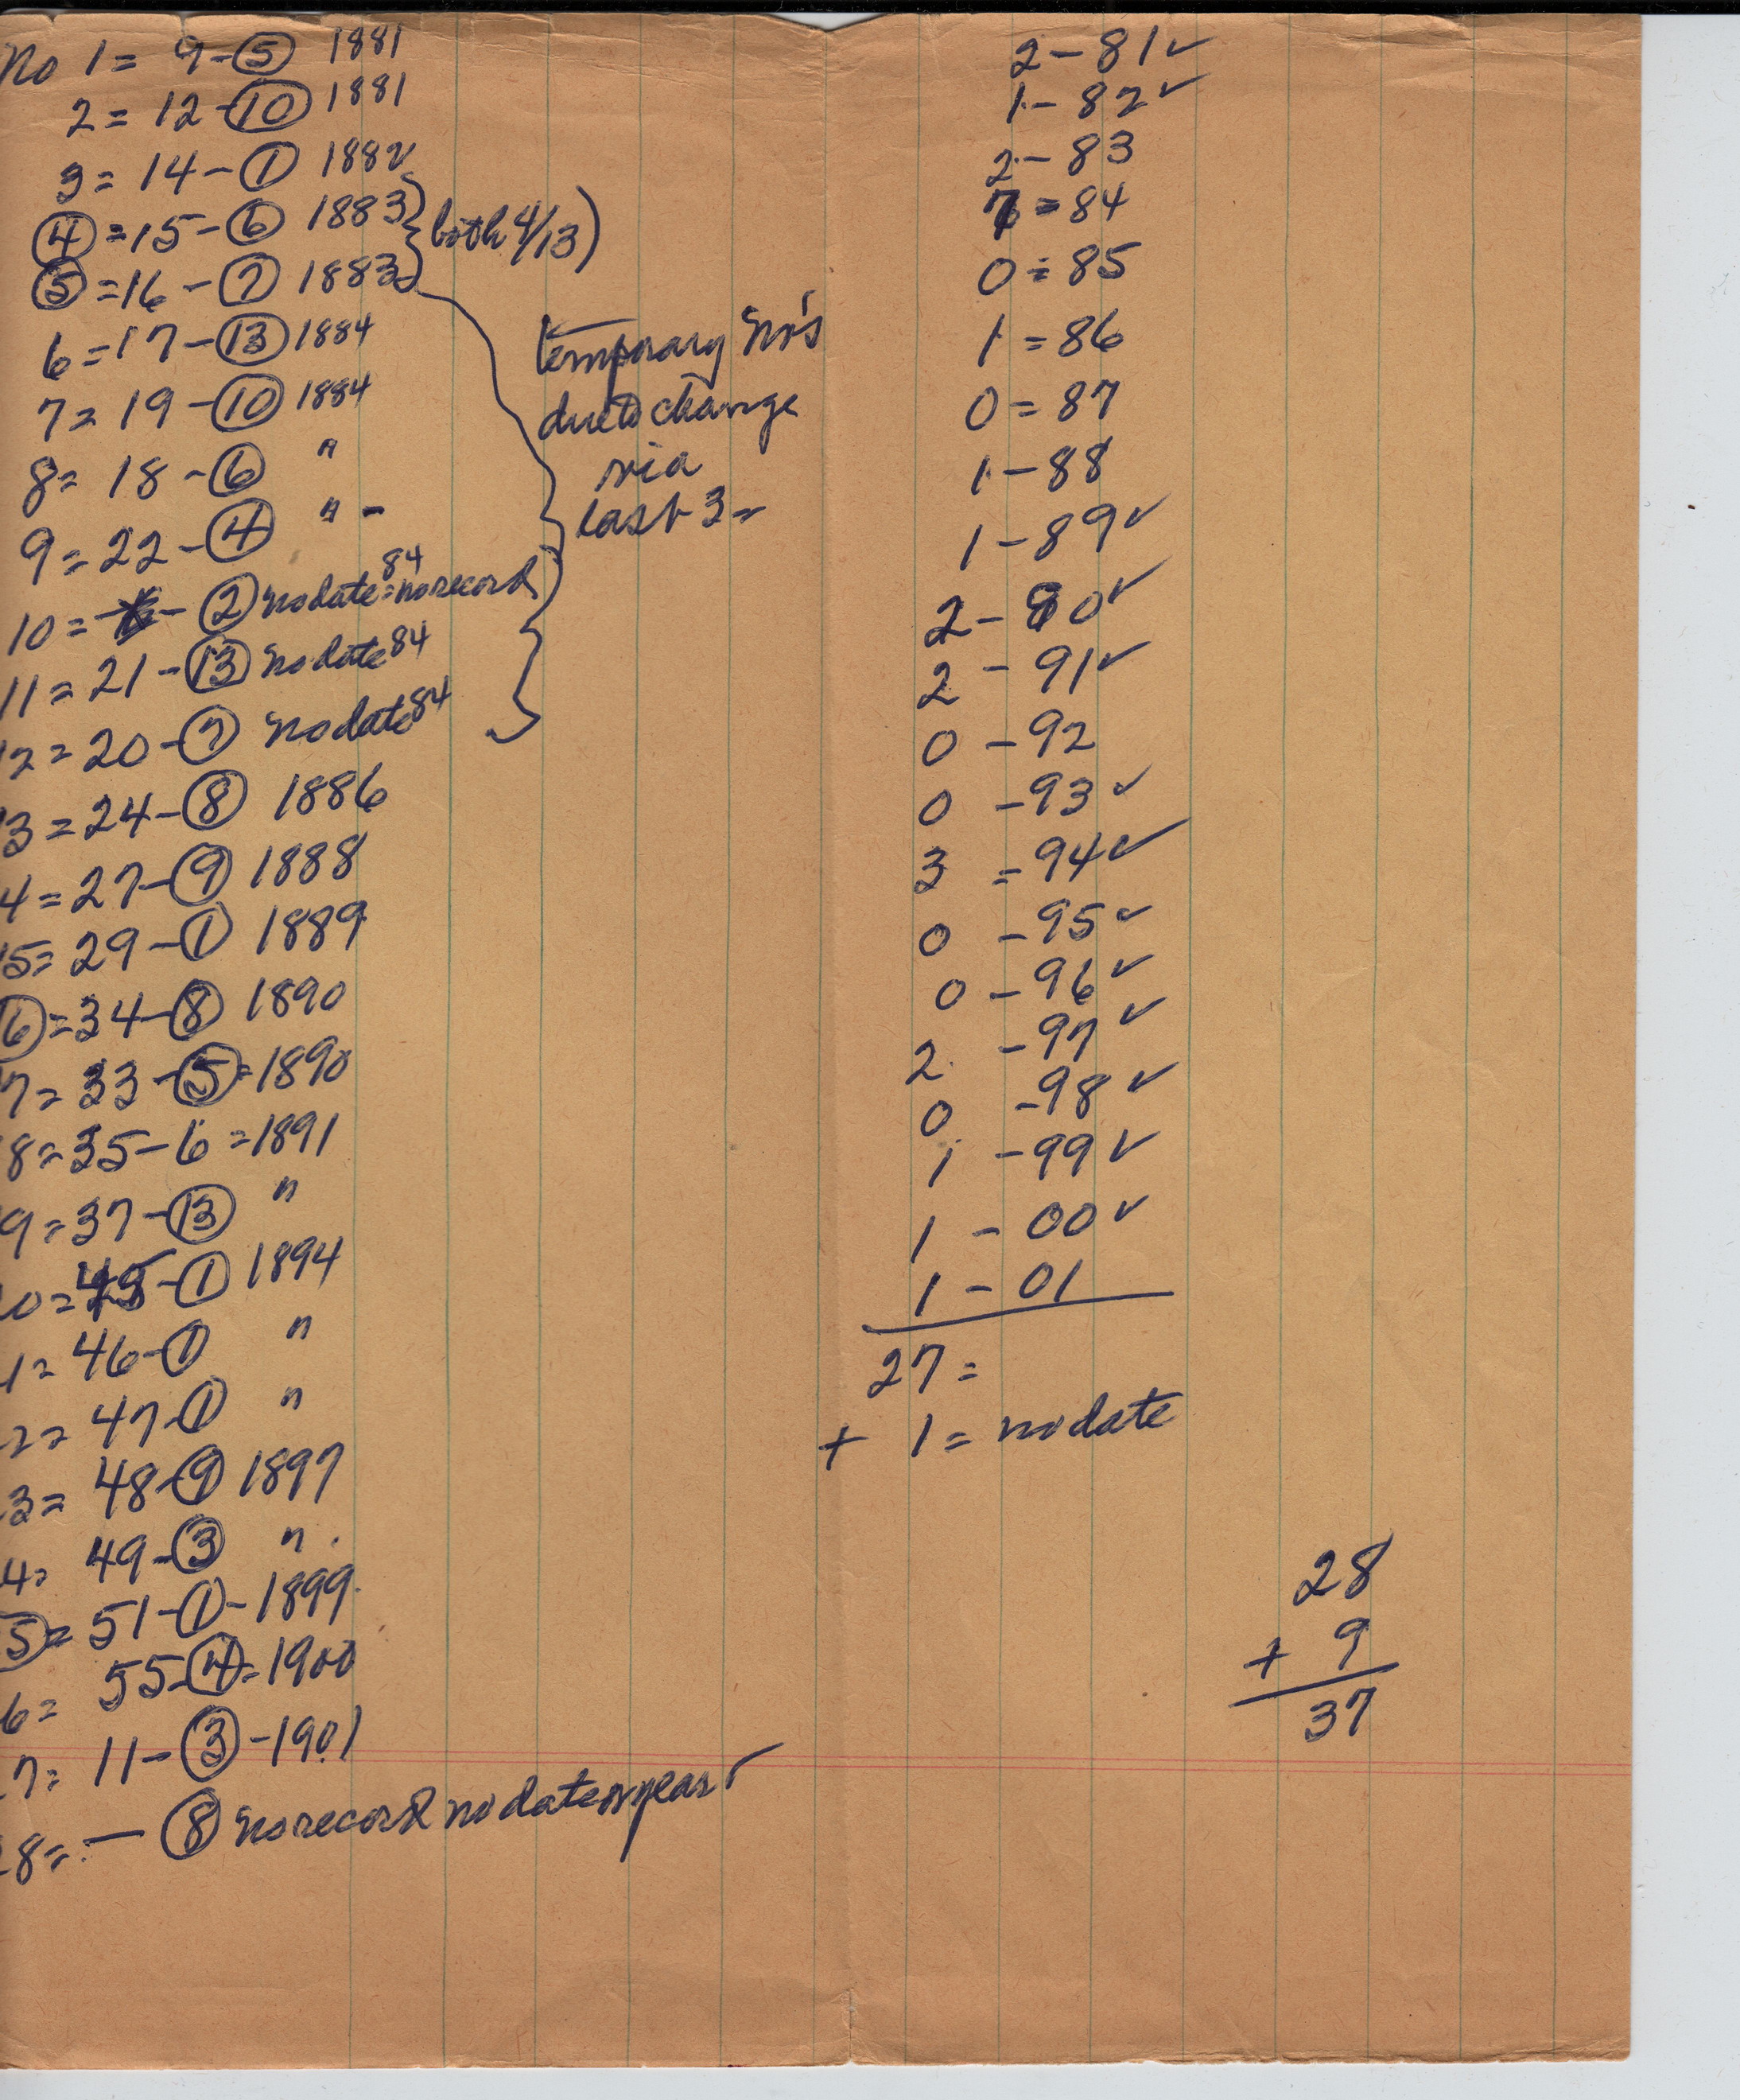 No 1 = 9 - 5 1881
2 = 12 - 10 1881
3 = 14 - 1 1882
4 = 15 - 6 1883
5 = 16 - 7 1883
both 4/13)
6 = 17 - 13 1884
7 = 19 - 10 1884
8 = 18 - 6 "
9 = 22 - 4 " -
10 = - 2 no date 84 = no record
11 = 21 - 13 no date 84
12 = 20 - 7 no date 84
temporary No's
due to change
via
last 3 =
3 = 24 - 8 1886
4 = 27 - 9 1888
15 = 29 - 1 1889
6 = 34 - 8 1890
7 = 33 - 5 = 1890
8 = 35 - 6 = 1891
9 = 37 - 13 "
0 = 45 - 1 1894
1 = 46 - 1 "
2 = 47 - 1 "
3 = 48 - 9 1897
4 = 49 - 3 " .
5 = 51 - 1 - 1899
6 = 55 - 4 = 1900
7 = 11 - 3 - 1901
28 = - 8 no record no date or year
2 - 81 ✓
1 - 82 ✓
2 - 83
7 = 84
0 = 85
1 = 86
0 = 87
1 - 88
1 - 89 ✓
2 - 90 ✓
2 - 91 ✓
0 - 92
0 - 93 ✓
3 = 94 ✓
0 - 95 ✓
0 - 96 ✓
2 - 97 ✓
0 - 98 ✓
1 - 99 ✓
1 - 00 ✓
1 - 01
27 =
+ 1 = no date
28
+ 9
37